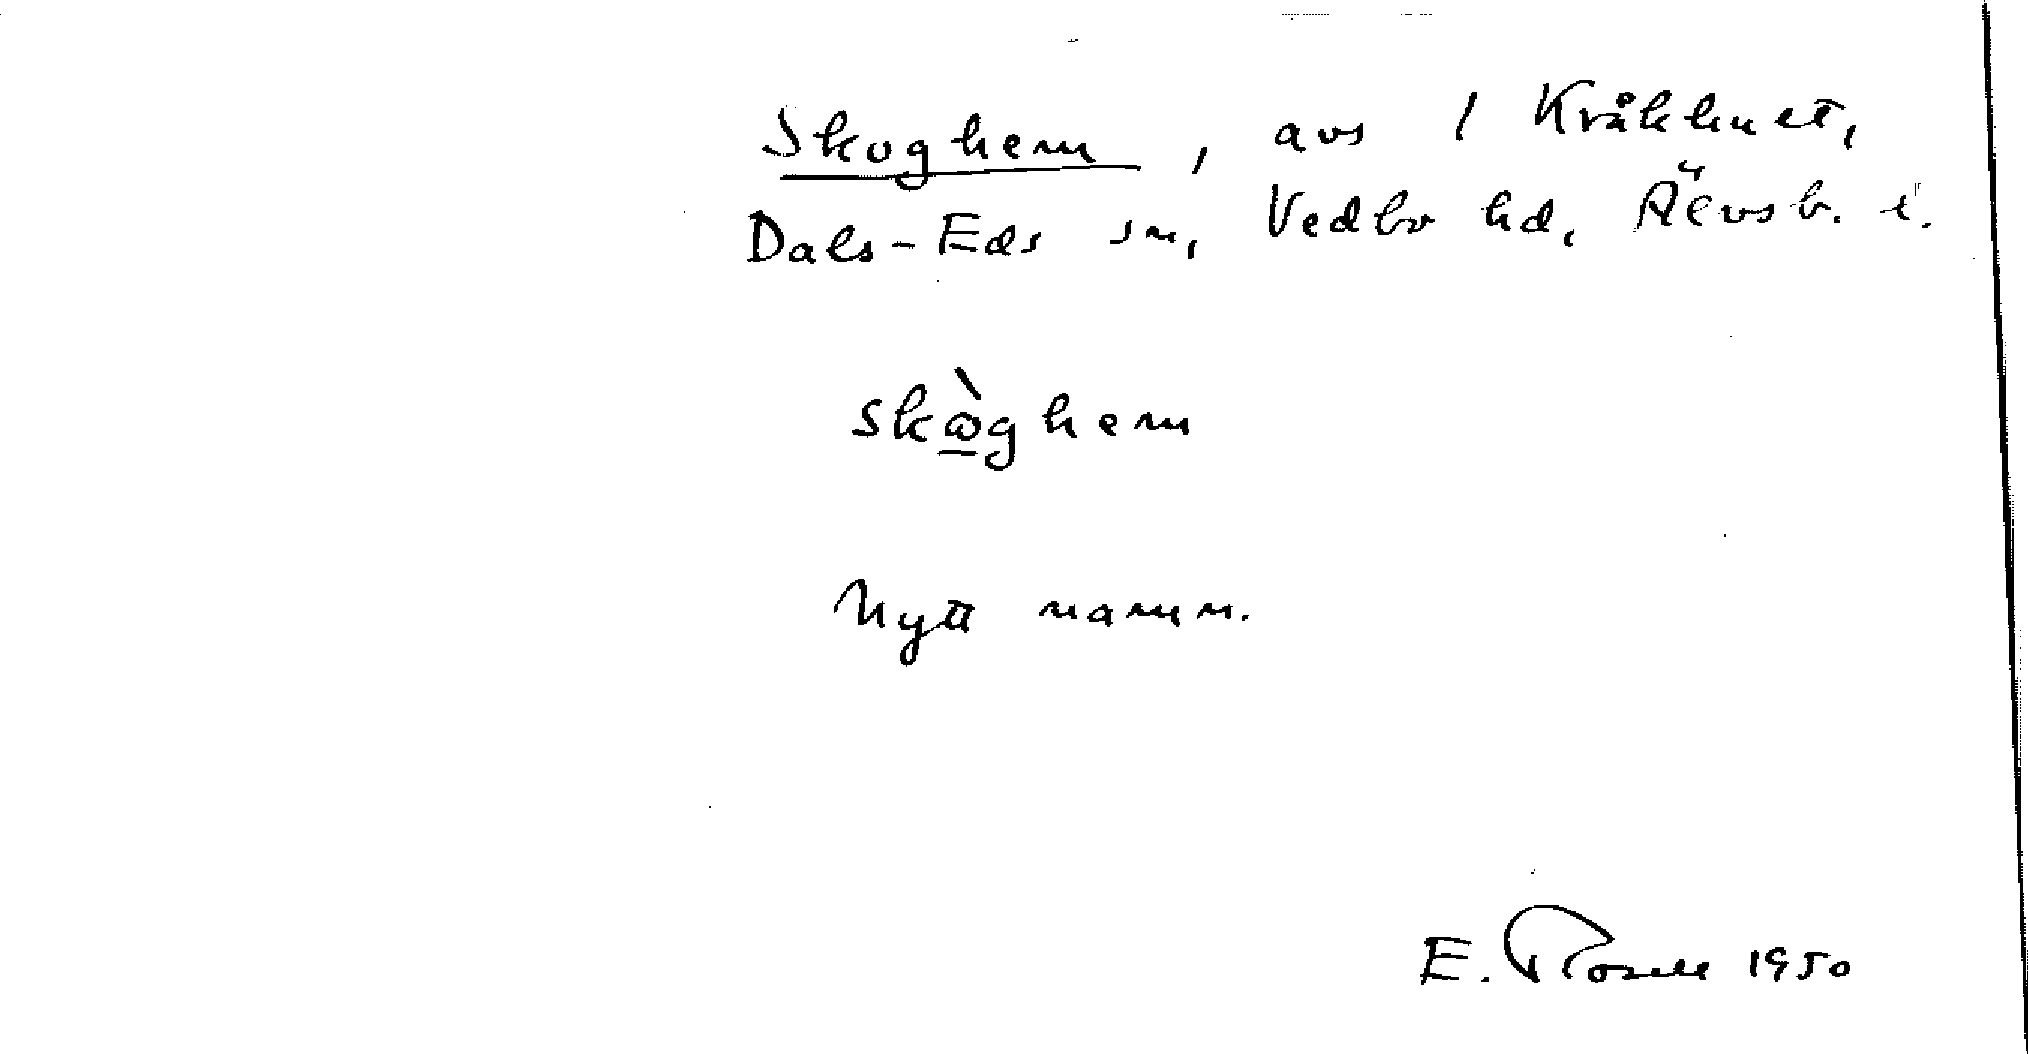 Skoghem, avs / Kråkknet,
Dals-Eds sn, Vedbo hd, Älvsb. l.
skὼ̲ghem
Nytt namn.
E. Rosell 1950